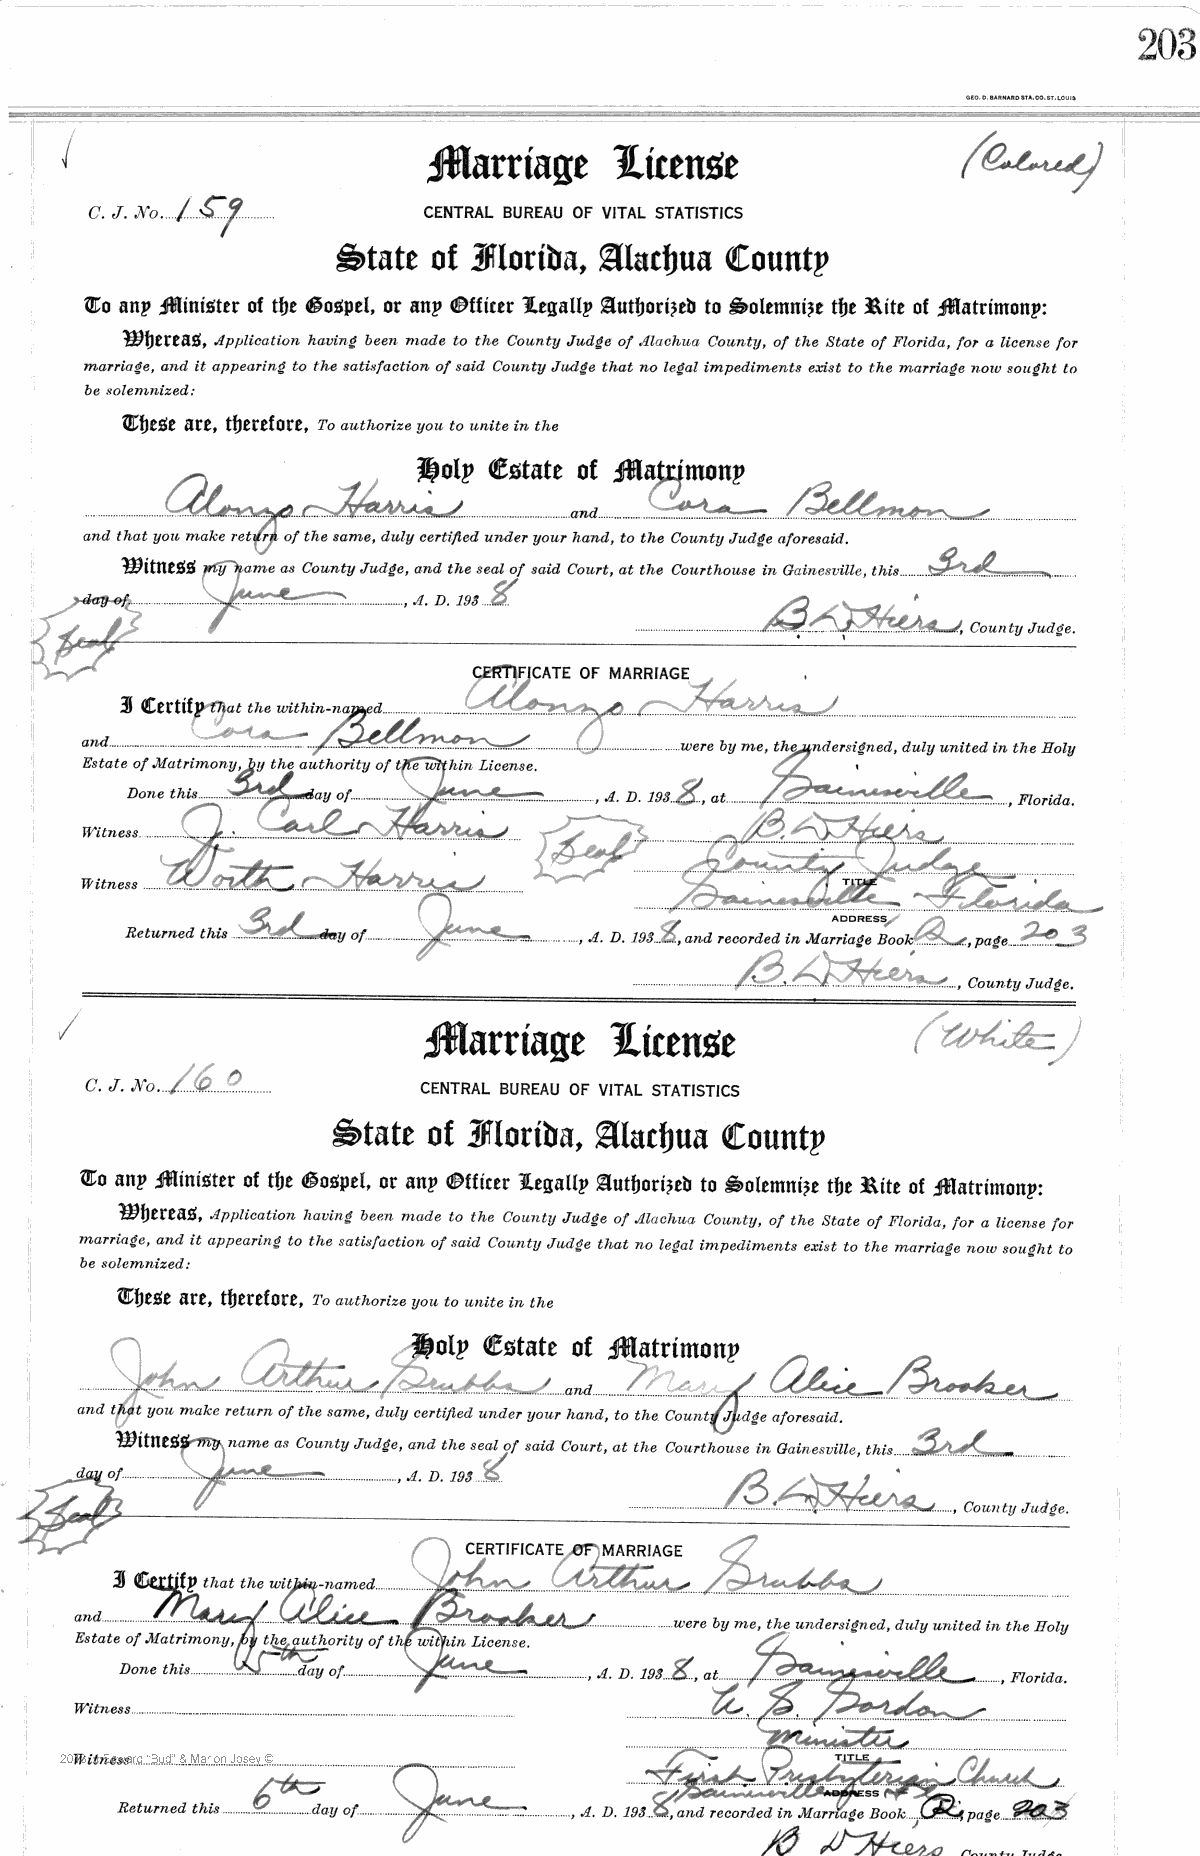 203
GEO. D. BARNARD STA. CO. ST. LOUIS
Marriage License (Colored)
C. J. No. 159 CENTRAL BUREAU OF VITAL STATISTICS
State of Florida, Alachua County
To any Minister of the Gospel, or any Officer Legally Authorized to Solemnize the Rite of Matrimony:
Whereas, Application having been made to the County Judge of Alachua County, of the State of Florida, for a license for
marriage, and it appearing to the satisfaction of said County Judge that no legal impediments exist to the marriage now sought to
be solemnized:
These are, therefore, To authorize you to unite in the
Holy Estate of Matrimony
Alonzo Harris and Cora Bellmon
and that you make return of the same, duly certified under your hand, to the County Judge aforesaid.
Witness my name as County Judge, and the seal of said Court, at the Courthouse in Gainesville, this 3rd
day of June, A. D. 1938
Seal B. D. Hiers, County Judge.
CERTIFICATE OF MARRIAGE
I Certify that the within-named Alonzo Harris
and Cora Bellmon were by me, the undersigned, duly united in the Holy
Estate of Matrimony, by the authority of the within License.
Done this 3rd day of June, A. D. 1938, at Gainesville, Florida.
Witness J. Carl Harris Seal B. D. Hiers
County Judge
Witness Worth Harris TITLE
Gainesville Florida
ADDRESS
Returned this 3rd day of June, A. D. 1938, and recorded in Marriage Book R, page 203
B. D. Hiers, County Judge.
Marriage License (White)
C. J. No. 160 CENTRAL BUREAU OF VITAL STATISTICS
State of Florida, Alachua County
To any Minister of the Gospel, or any Officer Legally Authorized to Solemnize the Rite of Matrimony:
Whereas, Application having been made to the County Judge of Alachua County, of the State of Florida, for a license for
marriage, and it appearing to the satisfaction of said County Judge that no legal impediments exist to the marriage now sought to
be solemnized:
These are, therefore, To authorize you to unite in the
Holy Estate of Matrimony
John Arthur Grubbs and Mary Alice Brooker
and that you make return of the same, duly certified under your hand, to the County Judge aforesaid.
Witness my name as County Judge, and the seal of said Court, at the Courthouse in Gainesville, this 3rd
day of June, A. D. 1938
Seal B. D. Hiers, County Judge.
CERTIFICATE OF MARRIAGE
I Certify that the within-named John Arthur Grubbs
and Mary Alice Brooker were by me, the undersigned, duly united in the Holy
Estate of Matrimony, by the authority of the within License.
Done this 5th day of June, A. D. 1938, at Gainesville, Florida.
Witness U. S. Gordon
Minister
Witness TITLE
Edward "Bud" & Marion Josey ©
First Presbyterian Church
Gainesville
ADDRESS
Returned this 6th day of June, A. D. 1938, and recorded in Marriage Book R, page 203
B D Hiers County Judge.